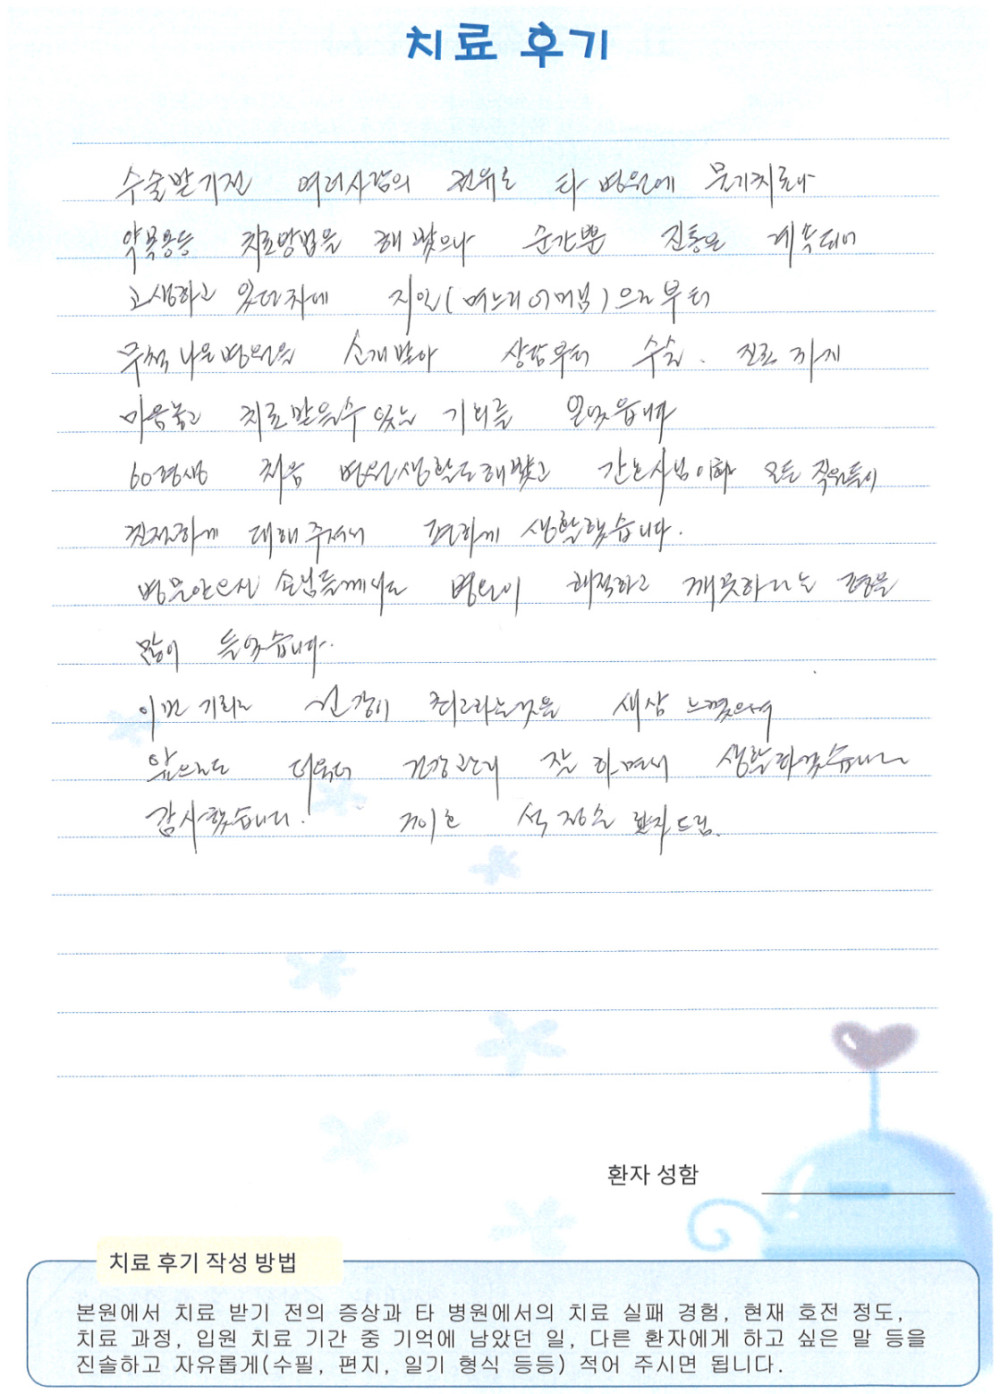 치료 후기
수술받기전 여러사람의 권유로 타 병원에 물리치료나
약복용등 치료방법을 해 봤으나 순간뿐 진통은 계속되어
고생하고 있던차에 지인(며느리 어머님)으로부터
무척 나은병원을 소개받아 상담부터 수술. 진료 까지
마음놓고 치료받을수 있는 기회를 얻었읍니다
60평생 처음 병원생활도해봤고 간호사님이하 모든 직원들이
친절하게 대해주셔서 편하게 생활했습니다.
병문안오신 손님들께서도 병원이 쾌적하고 깨끗하다는 평을
많이 들었습니다.
이번 기회로 건강이 최고라는것을 새삼 느꼈으며
앞으로도 더욱더 건강관리 잘 하면서 생활하겠습니다
감사했습니다! 석 환자드림.
환자 성함
치료 후기 작성 방법
본원에서 치료 받기 전의 증상과 타 병원에서의 치료 실패 경험, 현재 호전 정도,
치료 과정, 입원 치료 기간 중 기억에 남았던 일, 다른 환자에게 하고 싶은 말 등을
진솔하고 자유롭게(수필, 편지, 일기 형식 등등) 적어 주시면 됩니다.